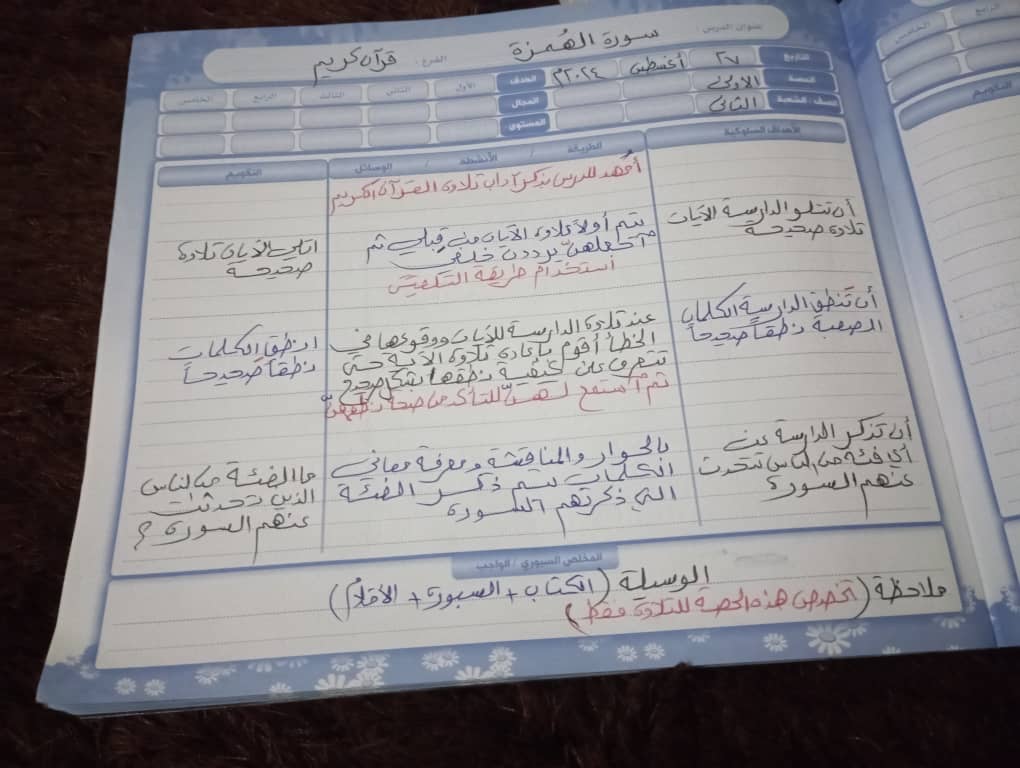 عنوان الدرس : سورة الهُمزة الفرع : قرآن كريم
التاريخ ٢٧ أغسطس ٢٠٢٤م الهدف الأول الثاني الثالث الرابع الخامس
الحصة الأولى المجال
الصف - الشعبة الثاني المستوى
الأهداف السلوكية الطريقة / الأنشطة / الوسائل التقويم
أمهد للدرس بذكر آداب تلاوة القرآن الكريم
أن تتلو الدارسة الآيات
تلاوة صحيحة
يتم أولاً تلاوة الآيات من قبلي ثم
أجعلهن يرددن خلفي
أستخدام طريقة التلقين
اتلي الآيات تلاوة
صحيحة
أن تنطق الدارسة الكلمات
الصعبة نطقاً صحيحاً
عند تلاوة الدارسة للآيات ووقوعها في
الخطأ أقوم بإعادة تلاوة الآية حتى
تتعرف على كيفية نطقها بشكل صحيح
ثم أستمع لهنّ للتأكد من صحة نطقهنّ
انطقي الكلمات
نطقاً صحيحاً
أن تذكر الدارسة عن
أي فئة من الناس تتحدث
عنهم السورة
بالحوار والمناقشة ومعرفة معاني
الكلمات يتم ذكر الفئة
التي ذكرتهم السورة
ما الفئة من الناس
الذين تحدثت
عنهم السورة ؟
الملخص السبوري / الواجب
الوسيلة (الكتاب + السبورة + الأقلام)
ملاحظة (تخصص هذه الحصة للتلاوة فقط)
الرابع
الخامس
التقويم